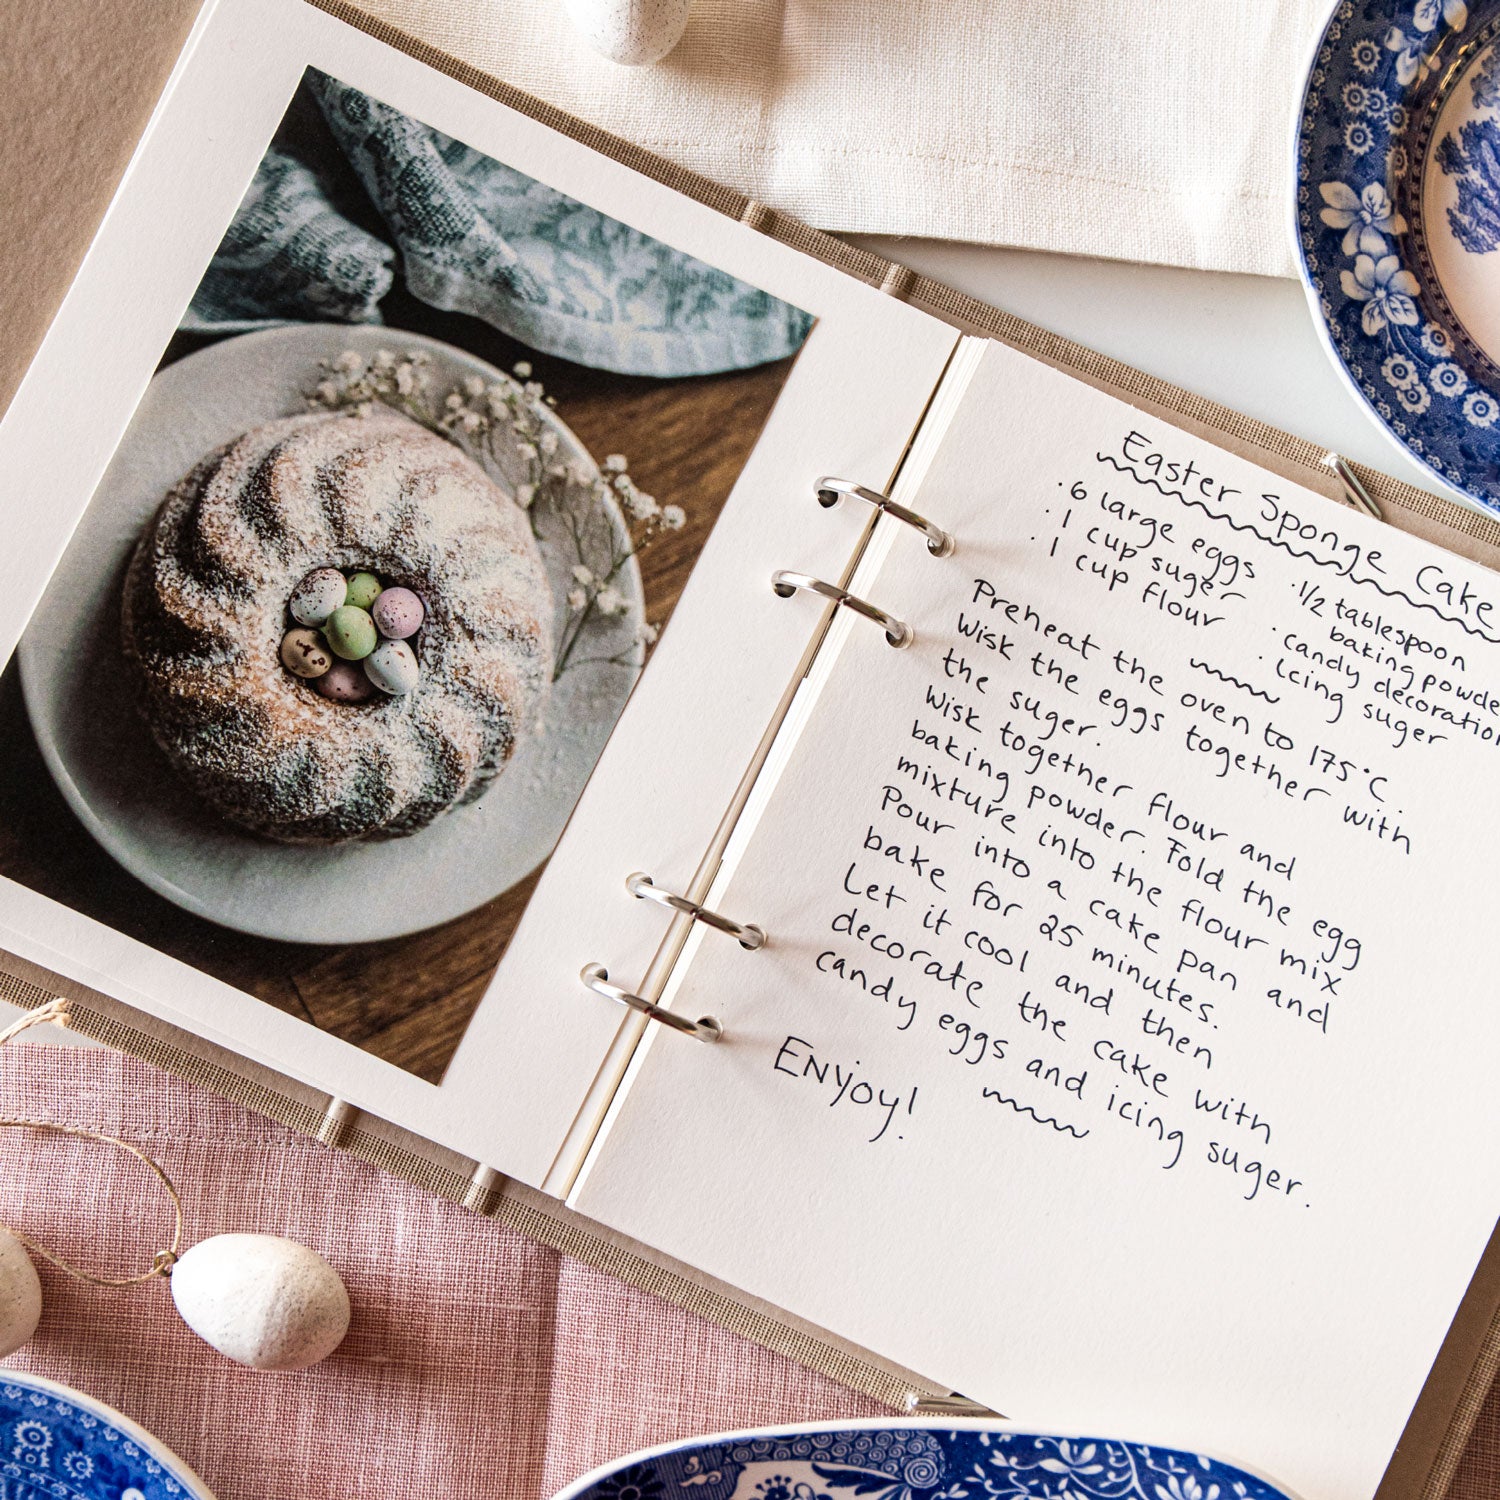 Easter Sponge Cake
· 6 large eggs
· 1 cup suger
· 1 cup flour
· 1/2 tablespoon
baking powde
· candy decoration
· Icing suger
Preheat the oven to 175°C.
Wisk the eggs together with
the suger.
Wisk together flour and
baking powder. Fold the egg
mixture into the flour mix
Pour into a cake pan and
bake for 25 minutes.
Let it cool and then
decorate the cake with
candy eggs and icing suger.
ENjoy!